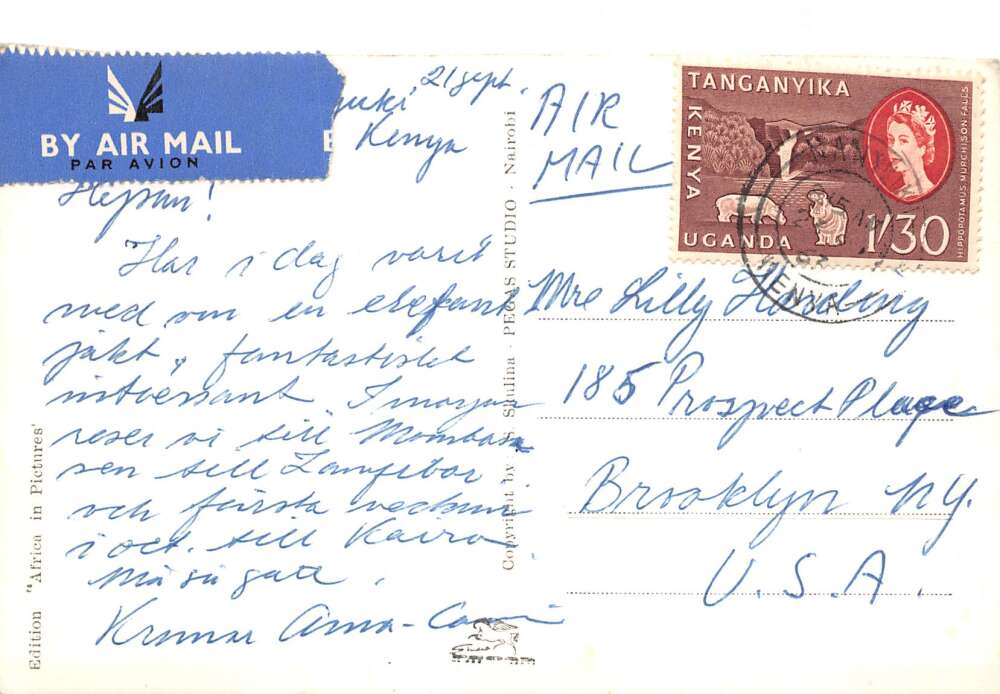 BY AIR MAIL
PAR AVION
21 Sept.
Kenya
Hejsan!
Har i dag varit
med om en elefant
jakt, fantastiskt
intressant. I morgon
reser vi till Mombasa
sen till Zanzibar
och första veckan
i oct. till Kairo.
Må så gott.
Kramar Anna-
Edition "Africa in Pictures"
Copyright by · S. Skulina · PEGAS STUDIO · Nairobi
AIR
MAIL
TANGANYIKA
KENYA
UGANDA
1/30
HIPPOPOTAMUS MURCHISON FALLS
KENYA
Mrs Lilly
185 Prospect Place
Brooklyn NY.
U.S.A.